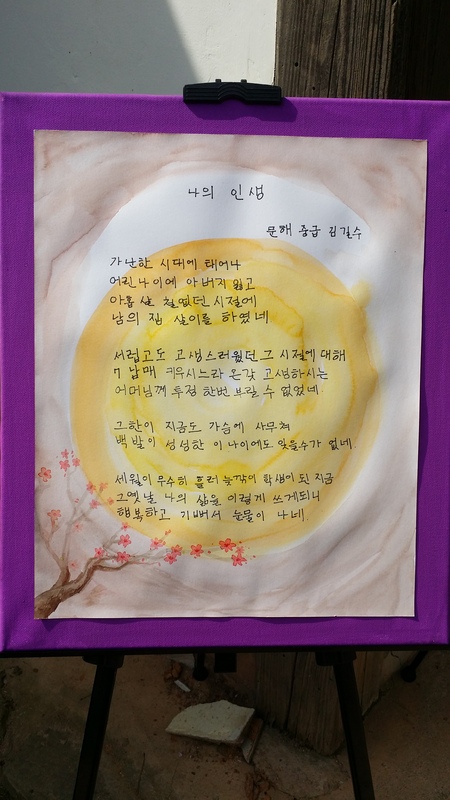 나의 인생
문해 중급 김길수
가난한 시대에 태어나
어린나이에 아버지 잃고
아홉살 철없던 시절에
남의 집 살이를 하였네
서럽고도 고생스러웠던 그 시절에 대해
7남매 키우시느라 온갖 고생하시는
어머님께 투정 한번 부릴 수 없었네
그한이 지금도 가슴에 사무쳐
백발이 성성한 이 나이에도 잊을수가 없네.
세월이 유수히 흘러 늦깎이 학생이 된 지금
그옛날 나의 삶을 이렇게 쓰게되니
행복하고 기뻐서 눈물이 나네.